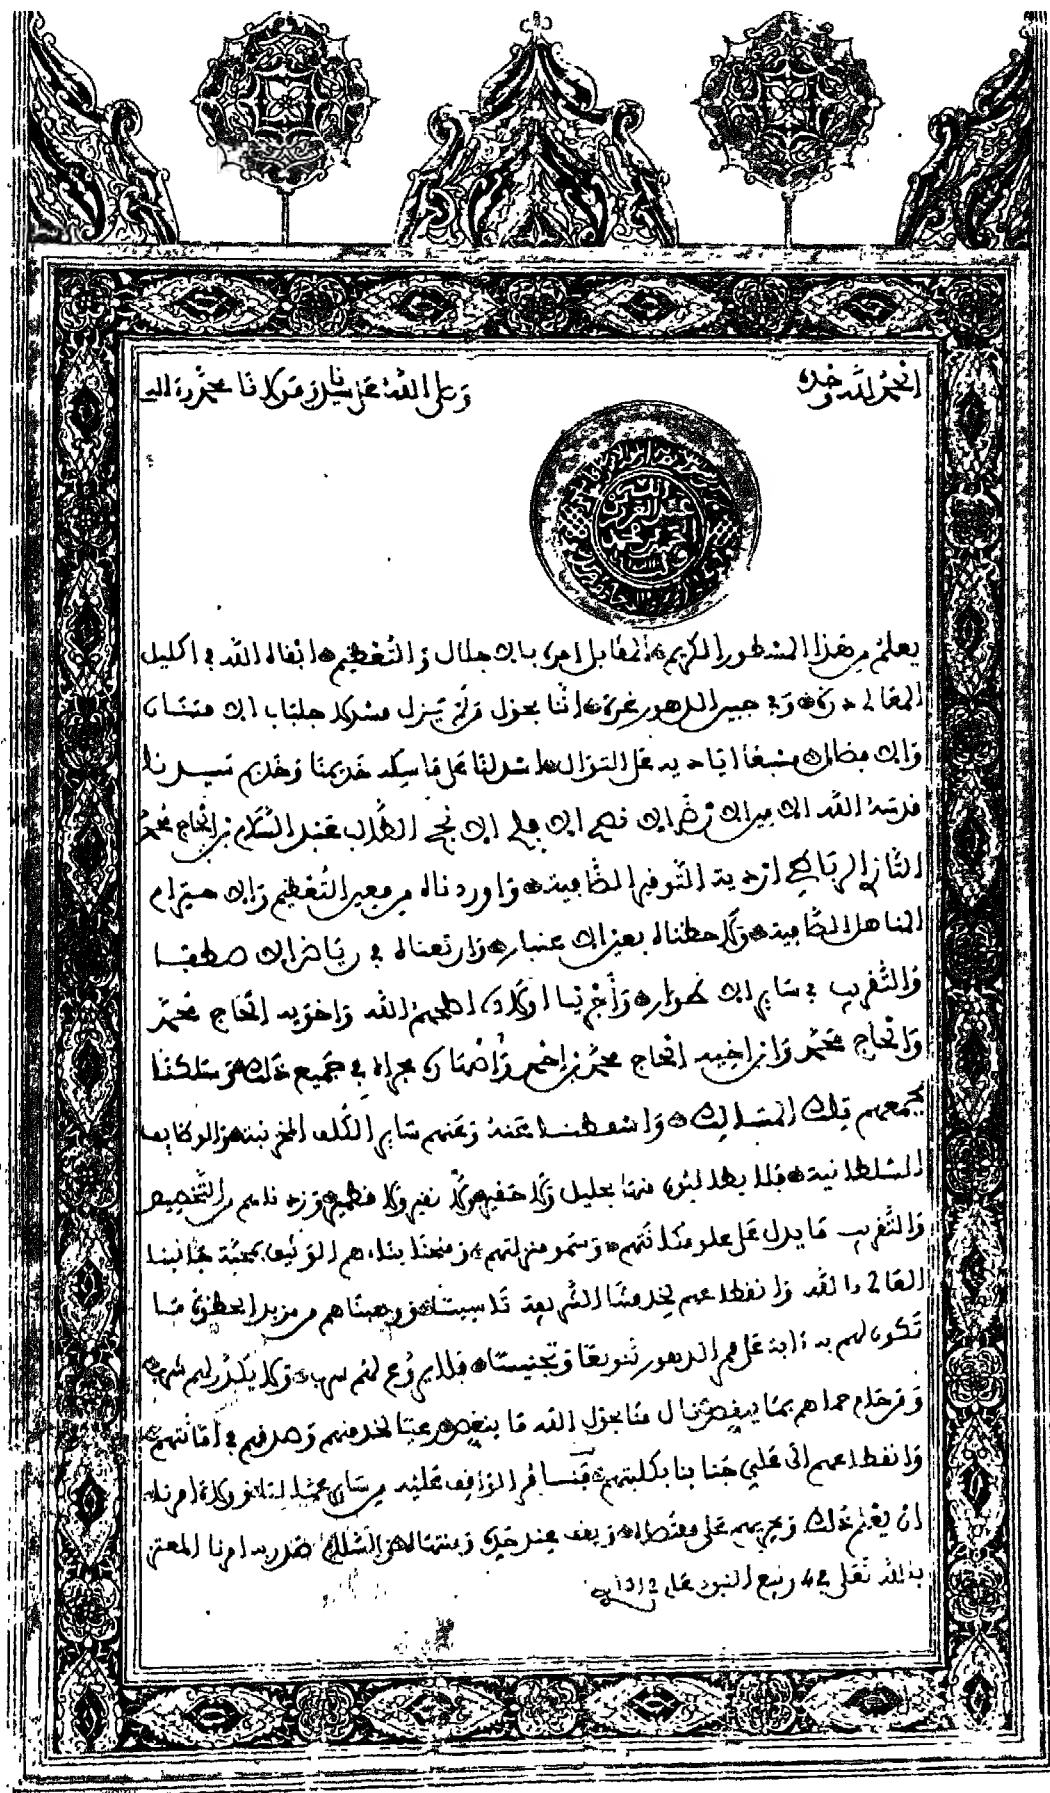 الحمد لله وحده
وصلى الله على سيدنا ومولانا محمد وءاله
عبد العزيز
بن الحسن
يعلم من هذا المسطور الكريم المقابل امره بالاجلال والتعظيم ابقاه الله في اكليل
المعالي درة وفي جبين الدهور غرة اننا بحول من لم يزل مسدلا جلباب الامتنان
والافضال مسبغا اياديه على التوال اسدلنا على ماسكه خديمنا وخديم سيدنا
قدسه الله الامين الارضى الانصح الافلح الانجح الطالب عبد السلام بن الحاج محمد
التازي الرباطي اردية التوقير الضافية واوردناه من معين التعظيم والاحترام
المناهل الصافية ولاحظناه بعين الاعتبار وارتعناه في رياض الاصطفا
والتقريب في ساير الاطوار واجرينا اولاده اصلحهم الله واخويه الحاج محمد
والحاج محمد وابن اخيه الحاج محمد بن احمد واصهاره مجراه في جميع ذلك وسلكنا
بجميعهم تلك المسالك واسقطنا عنه وعنهم ساير الكلف المخزنية والوظايف
السلطانية فلا يطالبون منها بجليل ولا حقير ولا نقير ولا قطمير وزدناهم من التخصيص
والتقريب ما يدل على علو مكانتهم وسمو منزلتهم ومنحنا بناءهم الوثيق بمحبة جانبنا
العالي بالله وانقطاعهم لخدمتنا الشريفة تاسيسا ووهبناهم من مزيد الحظوة ما
تكون لهم به ذابة على مر الدهور تنويعا وتجنيسا فلا يروع لهم سرب ولا يكدر لهم شرب
ومن حام حماهم بما ينقص ينال منا بحول الله ما ينغص رعيا لخدمتهم وصدقهم في امانتهم
وانقطاعهم الى علي جنابنا بكليتهم فنامر الواقف عليه من ساير عمالنا وولاة امرنا
ان يعلم ذلك ويجريهم على مقتضاه ويقف عند حده ومنتهاه والسلام صدر به امرنا المعتز
بالله تعلى في 4 ربيع النبوي عام 1312